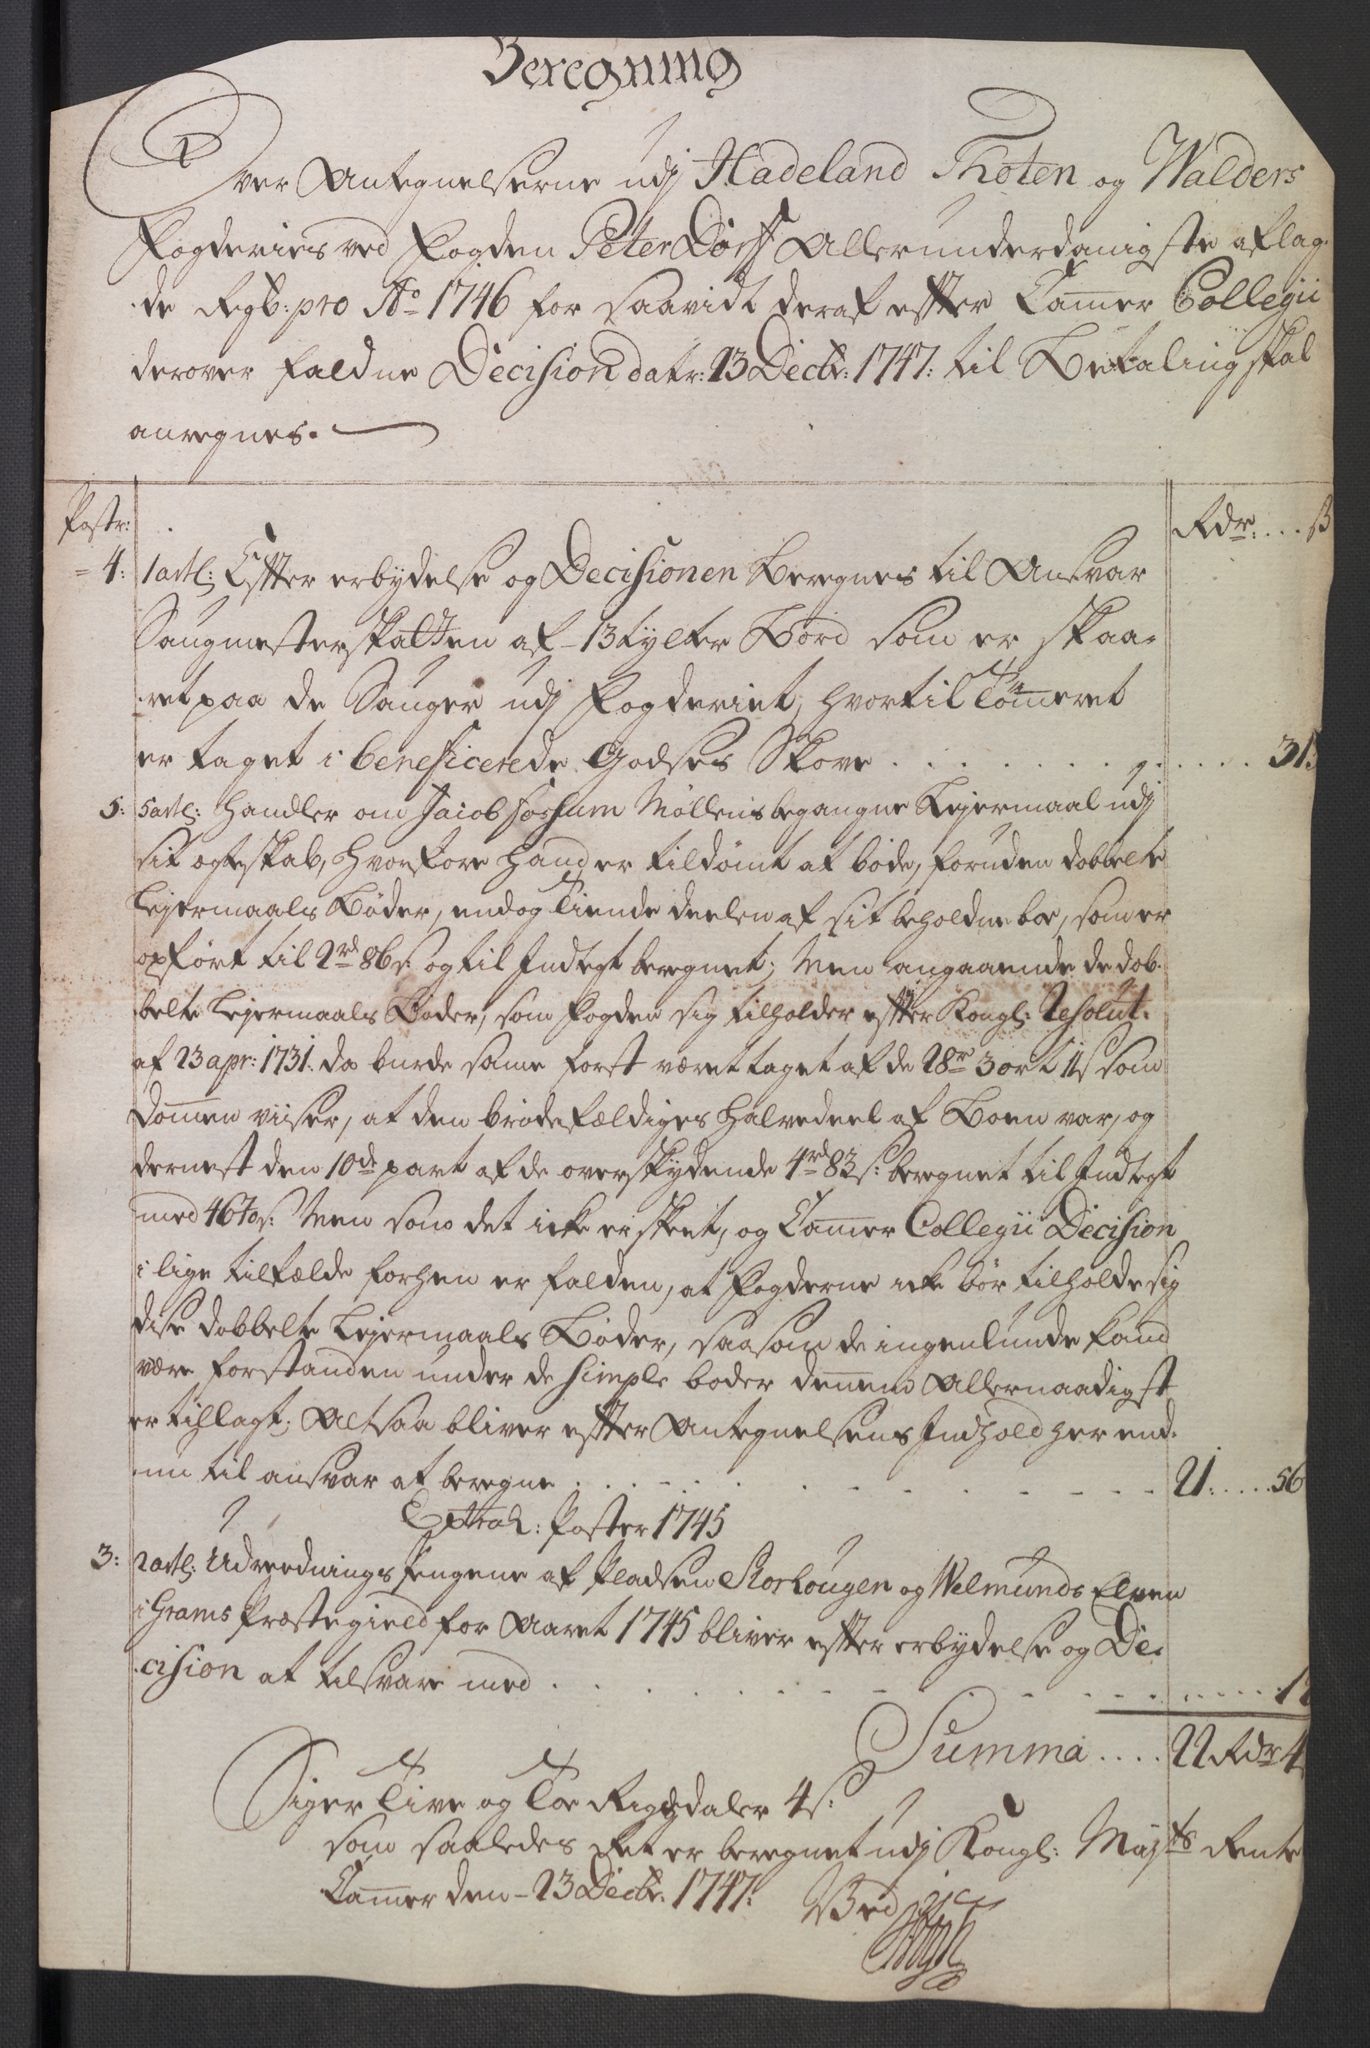 Beregning
Over Antegnelserne udj Hadeland Thoten og Walders
Fogderies ved Fogden Peter Dorff Allerunderdanigste aflag-
de Regb: pro Ao 1746 for saavidt deraf efter Camer Collegii
derover faldne Decision datr: 23 Decbr: 1747: til Betaling skal
anregnes.
Postr:
Rdr: ... ß
4: 1 artl: Effter erbydelse og Decisionen Beregnes til Ansvar
Saugmesterskatten af - 13 tylter Bord som er skaa-
ret paa de Sauger udj Fogderiet, hvortil Tømeret
er taget i beneficerede Godses Skove . . . . . 31
5: 5 artl: handler om Jacob Fossum Møllens begangne Lejermaal udj
sit egteskab, hvorfore hand er tildømt at bøde, foruden dobbelte
Lejermaals Bøder, endog Tiende deelen af sit beholdne boe, som er
opført til 2rd 86s og til Indtegt beregnet; Men angaaende de dob-
belte Lejermaals Bøder, som Fogden sig tilholder effter Kongl: Resolut:
af 23 apr: 1731. da burde same først været taget af de 28r 3 ort 11s som
Dommen viiser, at den brødefældiges halvedeel af Boen var, og
dernest den 10de part af de overskydende 4rd 83s: beregnet til Indtegt
med 46 s: Men som det icke er skeet, og Camer Collegii Decision
i lige tilfælde forhen er falden, at Fogderne icke bør tilholde sig
disse dobbelte Lejermaals Bøder, saasom de ingenlunde kand
være forstanden under de simple bøder dennem Allernaadigst
er tillagt; Altsaa bliver effter Antegnelsens Indhold her end-
nu til ansvar at beregne . . . . . 21: .... 56
Extract: Poster 1745
3: 2 artl: Udreednings Pengene af Pladsen Storhougen og Velmunds Elven
i Grams Præstegield for Aaret 1745 bliver effter erbydelse og De-
cision at tilsvare med . . . . .
Summa .... 22 Rdr 4
Siger Tive og Toe Rigsdaler 4 s:
som saaledes Ret er beregnet udj Kongl: Majts Rente
Camer den - 23 Decbr. 1747.
Ved